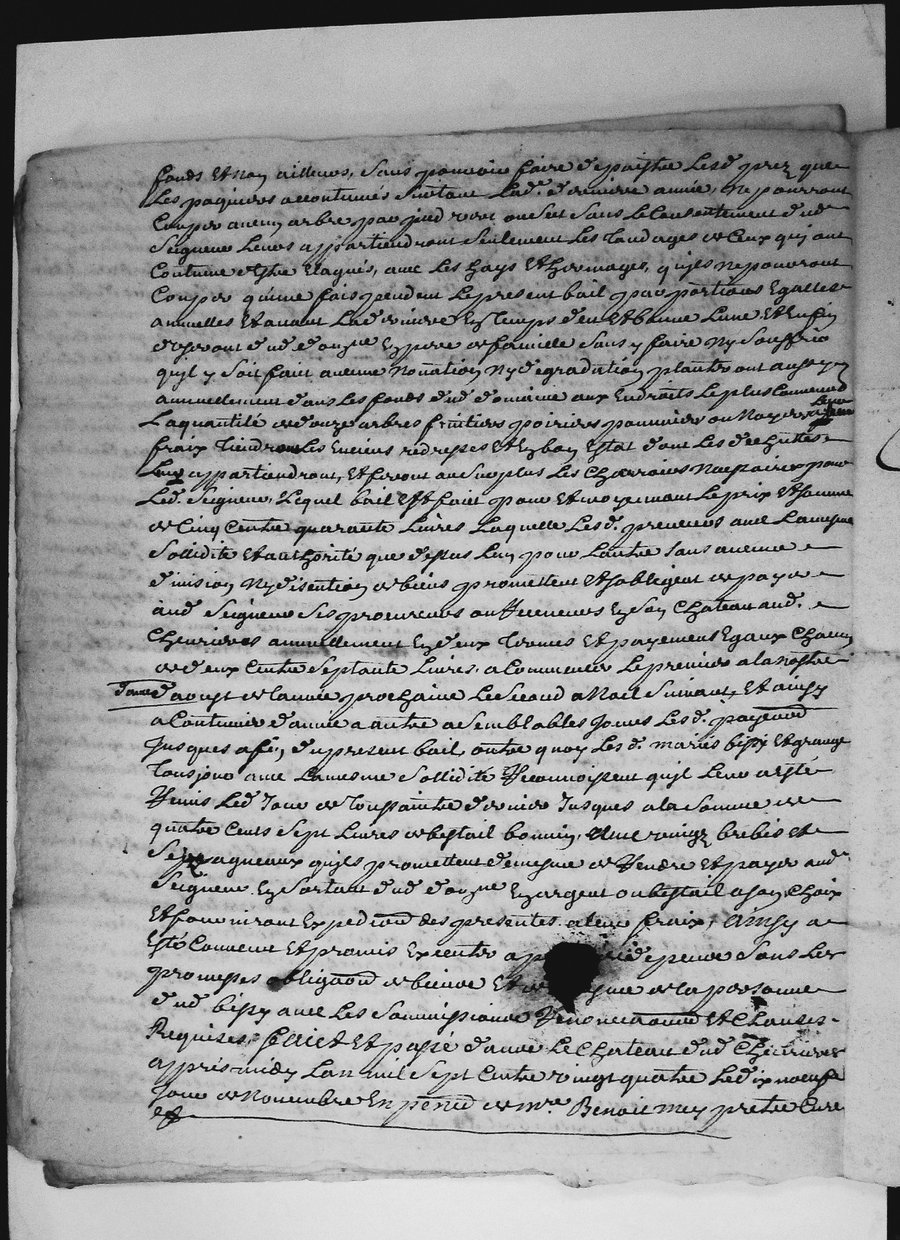 fonds et non ailleurs, sans pouvoir faire depaistre lesd. prez que
les paquiers accoutumés surtout lad. derniere année, ne pourront
couper aucun arbre par pied vert ou sec sans le consentement dud
Seigneur leurs appartiendront seulement les tondages de ceux qui ont
coutume estre elagués, avec les hays et
couper qu'une fois pendent le present bail par portions egalles
annuelles et avant lad. en temps deu et bonne lune et enfin
dud. dom.ne en pere de famille sans y faire ny souffrir
qu'il y soit fait aucune novation ny degradation planteront aussy
annuellement dans les fonds dud. domaine aux endroits le plus commod
la quantité de douze arbres fruitiers poiriers pommiers ou noyers a leur
fraix tiendront les redressés et en bon estat dont les
leur appartiendront, et feront au surplus les charrois necessaires pour
led. Seigneur, lequel bail est fait pour et moyennant le prix et somme
de cinq cents quarante livres laquelle lesd. preneurs avec la mesme
sollidité et authorité que dessus l'un pour l'autre sans aucune
division ny disention de biens promettent et s'obligent de payer
aud Seigneur ses procureurs ou en son chateau aud.
Chevrieres annuellement en deux termes et payemens egaux chacun
de deux cents septante livres, a commencer le premier a la nostre
dame d'aoust de l'année prochaine le second a Noel suivant, et ainsy
a continuer d'année a autre a semblables jours lesd. payemens
jusques a fin du present bail, outre quoy lesd. mariés bissy et grange
toujour avec la mesme sollidité reconnoissent qu'il leur a esté
remis led. jour de toussaintz dernier jusques a la somme de
quatre cents sept livres de bestail bovin, vingt brebis et
sept agneaux qu'ils promettent de mesme de rendre et payer aud
Seigneur en sortant dud. dom.ne en argent ou bestail a son choix
et fourniront expedition des presentes a leur fraix, ainsy a
esté convenu et promis executer a peine sous les
promesses obligaon de biens et de la personne
dud bissy avec les soummissions renonciations et clauses
requises, fait et passé dans le chateau dud. Chevrieres
apprès midy l'an mil sept cents vingt quatre le dix neufe
jour de novembre en presence de m.re Benoit mey pretre curé